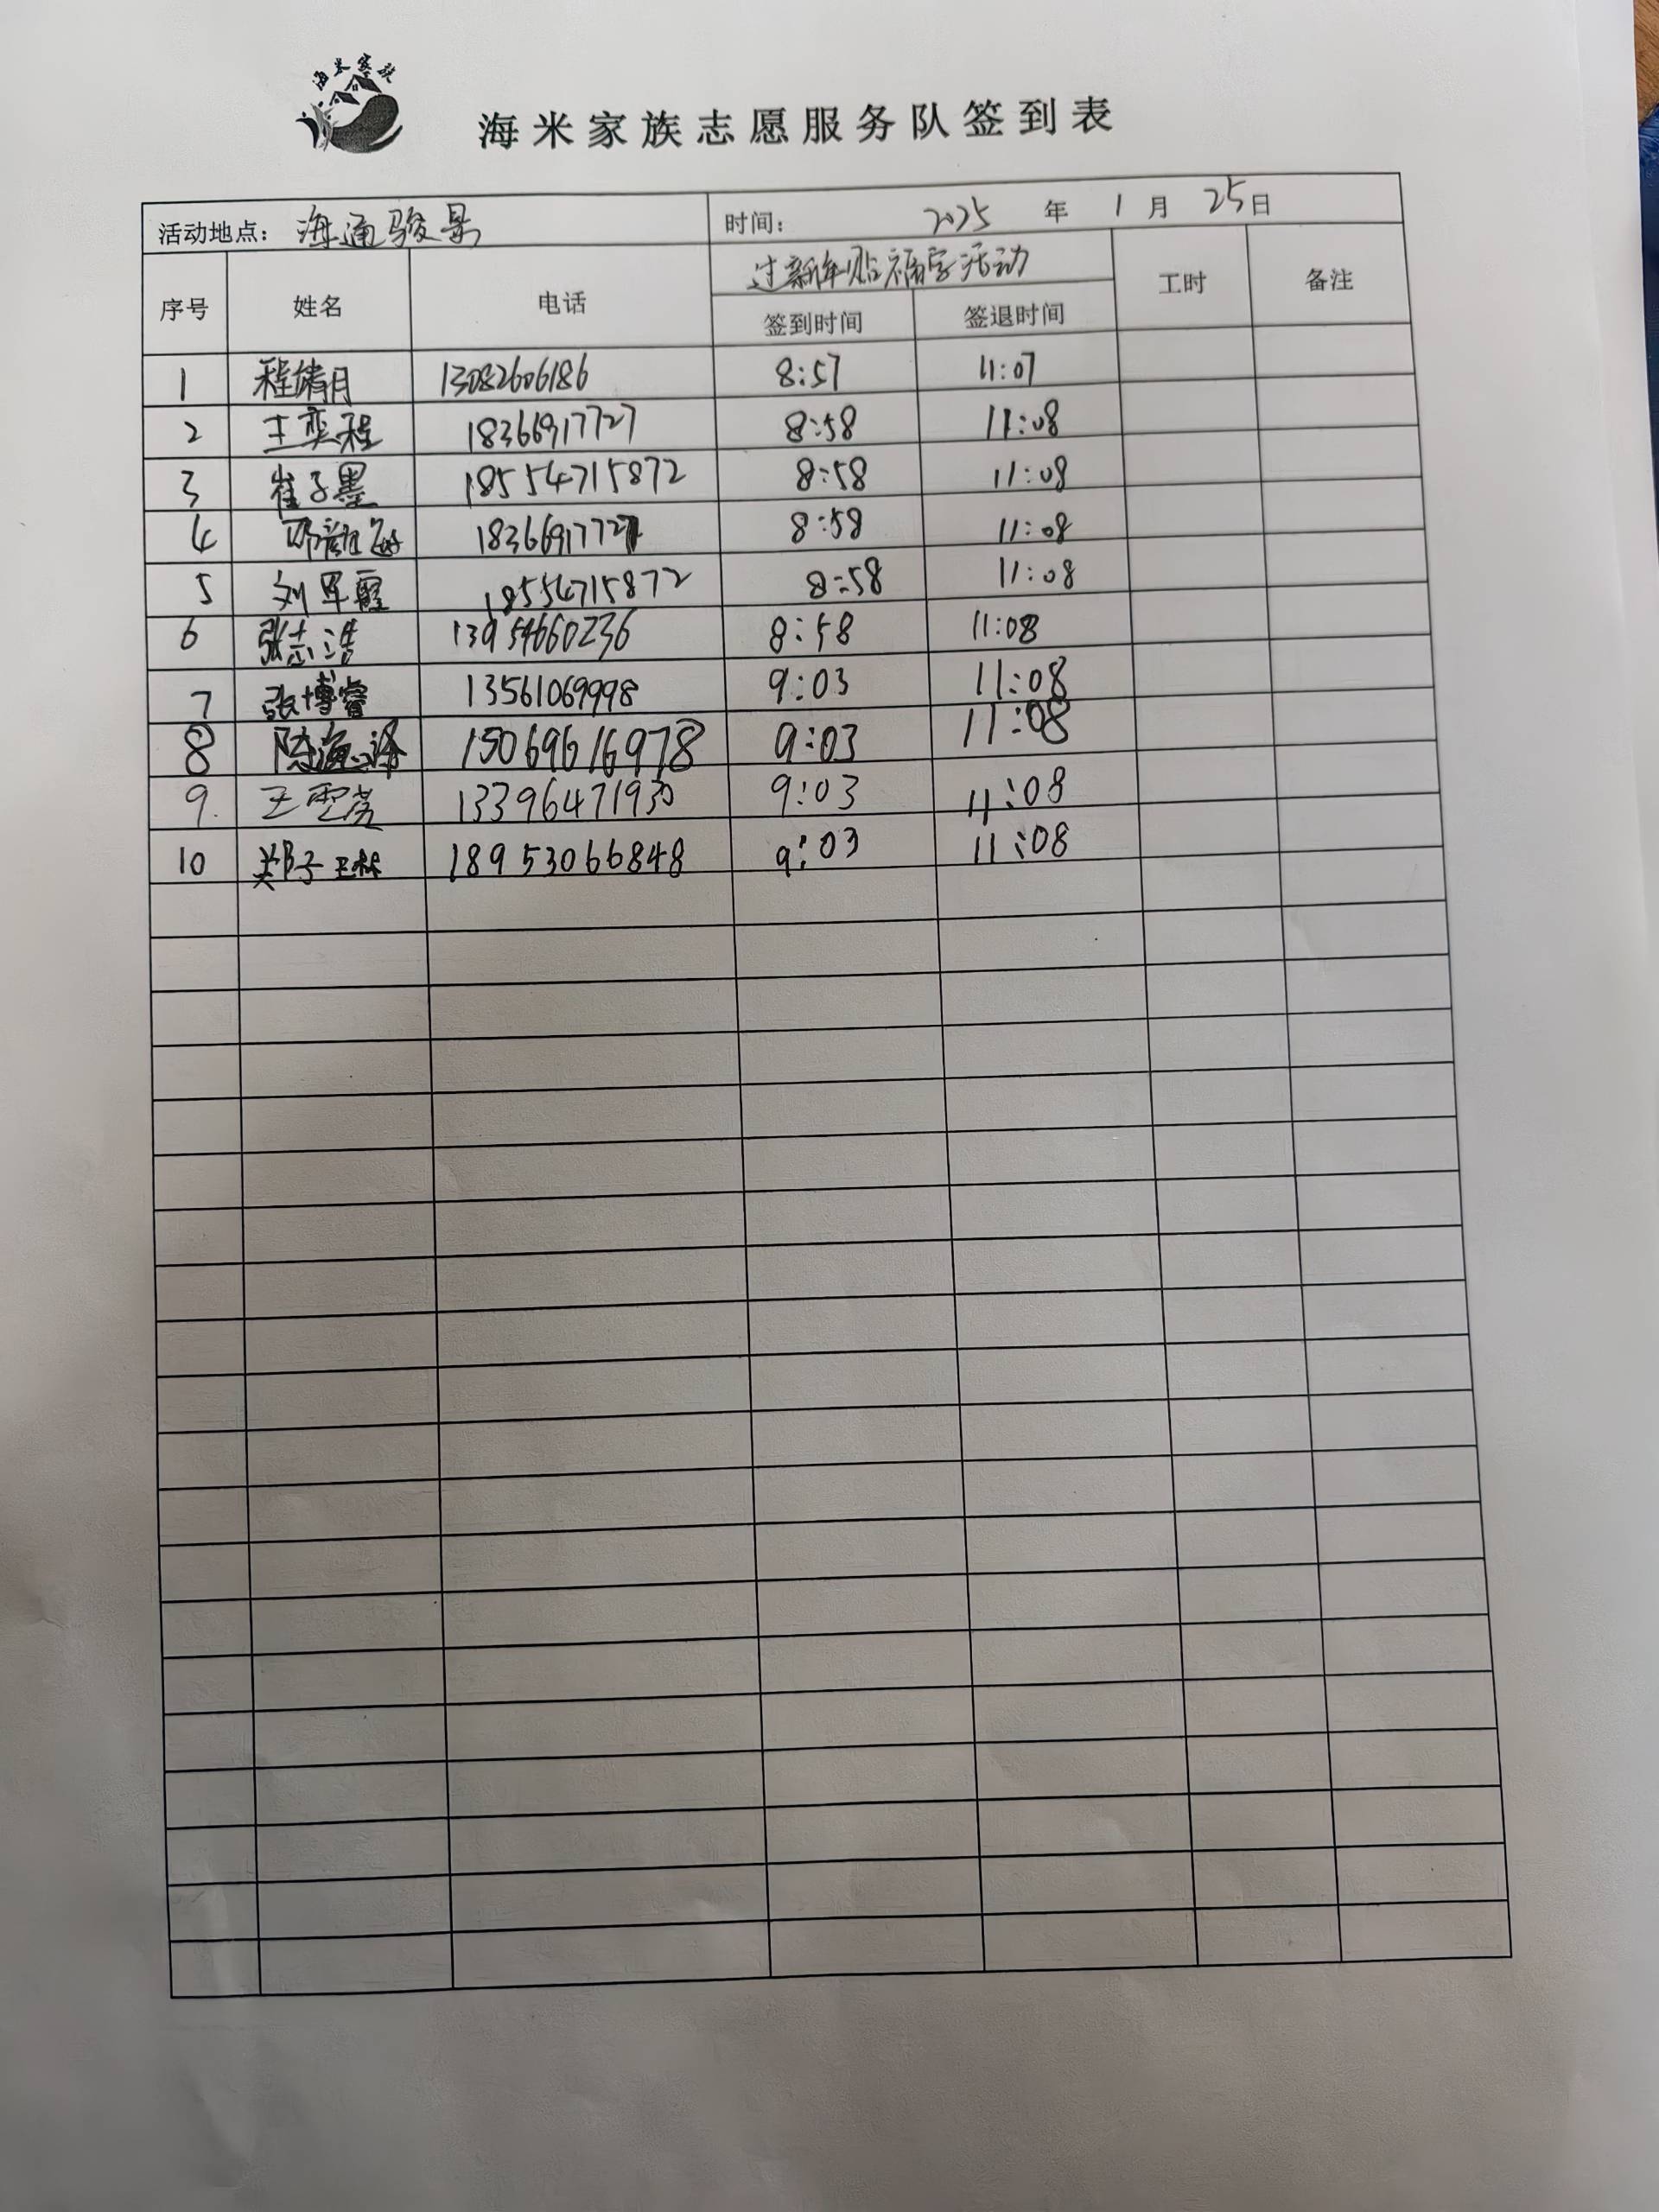 海米家族
海米家族志愿服务队签到表
活动地点： 海通骏景 时间： 2025 年 1 月 25日
序号 姓名 电话 过新年贴福字活动 工时 备注
签到时间 签退时间
1 程婧月 13082606186 8:57 11:07
2 王奕程 18366917727 8:58 11:08
3 崔子墨 18554715872 8:58 11:08
4 18366917727 8:58 11:08
5 刘军霞 18554715872 8:58 11:08
6 张志浩 13954660236 8:58 11:08
7 张博睿 13561069998 9:03 11:08
8 陈海泽 15069616978 9:03 11:08
9. 王雪芳 13396471930 9:03 11:08
10 郑子琳 18953066848 9:03 11:08